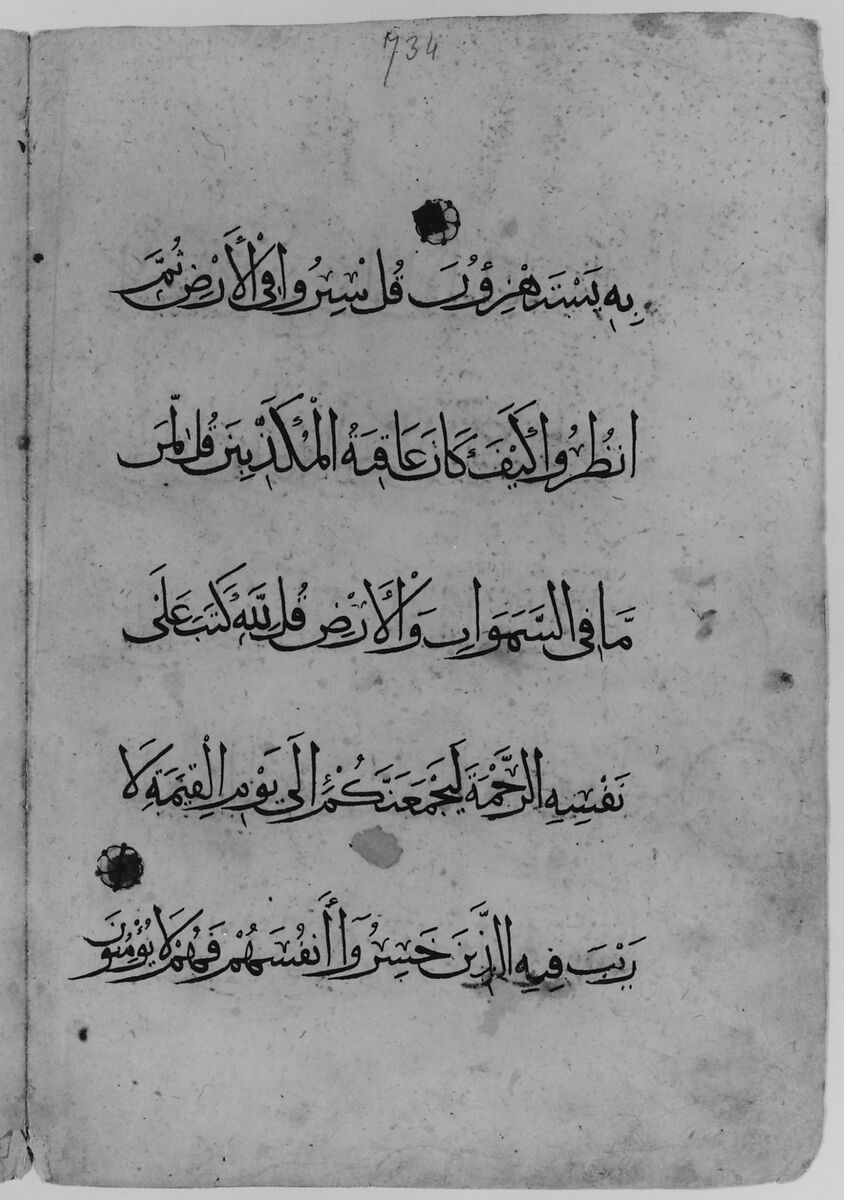 734
بِهِ يَسْتَهْزِؤُنَ قُلْ سِيرُوا فِي الْأَرْضِ ثُمَّ
انْظُرُوا كَيْفَ كَانَ عَاقِبَةُ الْمُكَذِّبِينَ قُلْ لِّمَن
مَّا فِي السَّمَوَاتِ وَالْأَرْضِ قُلْ لِلَّهِ كَتَبَ عَلَى
نَفْسِهِ الرَّحْمَةَ لَيَجْمَعَنَّكُمْ إِلَى يَوْمِ الْقِيَمَةِ لَا
رَيْبَ فِيهِ الَّذِينَ خَسِرُوا أَنفُسَهُمْ فَهُمْ لَا يُؤْمِنُونَ